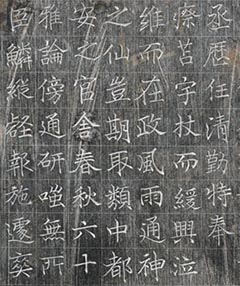 丞歷任清勤特奉
苔宇杖而緩興泣
維而在政風雨通神
之仙豈期取類中都
安之官舍春秋六十
雅論傍通研嗤無所
巨鱗縱壑報施遽爽